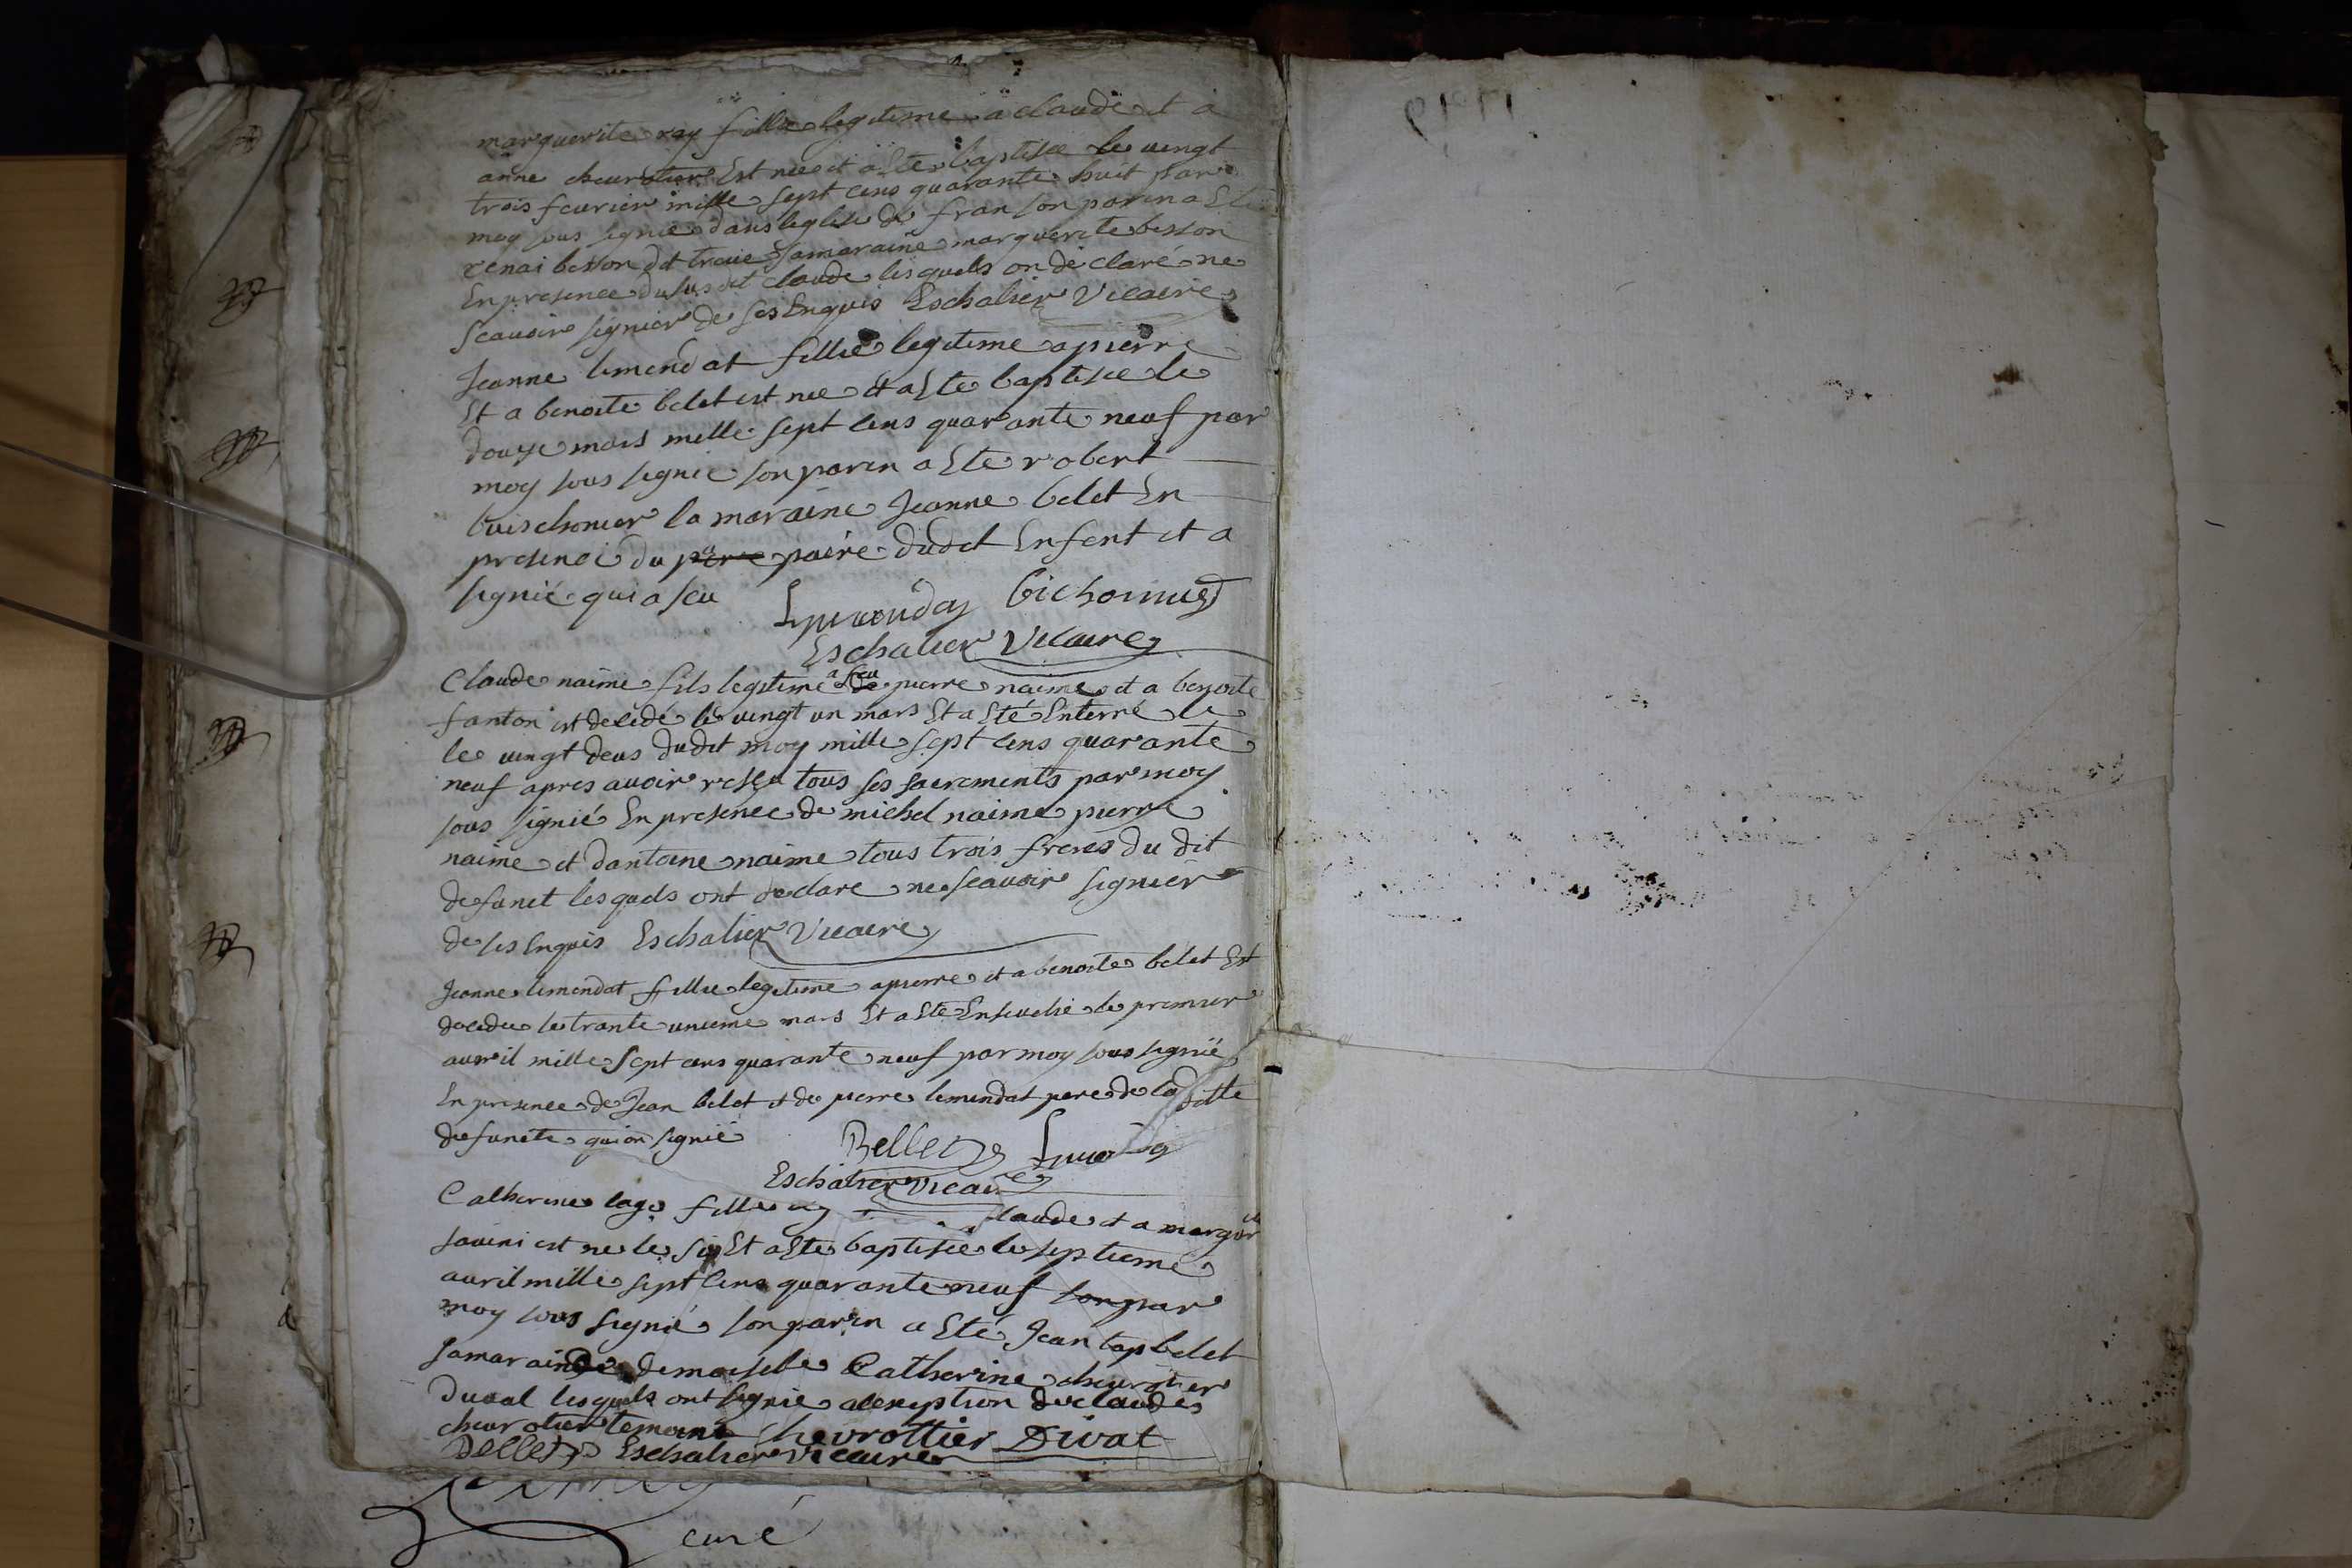 marguerite rey fillie legitime a claude et a
anne cheurotier Est nee et a Ete baptisee le vingt
trois feurier mille sept cens quarante huit par
moy sous signie dans leglise de fran son parin a Ete
renai besson dit traue sa maraine marguerite besson
En presence du susdit claude lesquels on declaré ne
scauoir signier de ses Enquis Eschalier Vicaire
Jeanne limendat fillie legitime a pierre
Et a benoite belet est nee et a Ete baptisee le
douze mars mille sept cens quarante neuf par
moy sous signie son parin a Ete robert
buichonier la maraine Jeanne belet En
presence du pere paire dudit Enfent et a
signié qui a scu
Eschalier Vicaire
Claude naime fils legitime a feu pierre naime et a benoite
fanton est decedé le vingt un mars Et a Eté Enterré le
le vingt deus dudit moy mille sept cens quarante
neuf apres auoir resçu tous ses sacrements par moy
sous signié En presence de michel naime pierre
naime et dantoine naime tous trois freres du dit
defunct lesquels ont declare ne scauoir signier
de ses Enquis Eschalier Vicaire
Jeanne limendat fillie legitime a pierre et a benoite belet Est
decedee le trante unieme mars Et a Ete Enseuelie le premier
auvril mille sept cens quarante neuf par moy sous signié
En presence de Jean belet et de pierre lemendat pere de la ditte
defuncte qui on signié
Bellet
Eschalier Vicaire
Catherine lage fillie claude et a margarite
sauini est ne le six Et a Ete baptisee le septieme
auril mille sept cens quarante neuf son par
moy sous signié son parin a Eté Jean bap belet
sa maraine demoiselle Catherine cheurotier
duual lesquels ont signie a lexeption de claude
cheurotier temoins Chevrottier Divat
Bellet Eschalier Vicaire
curé